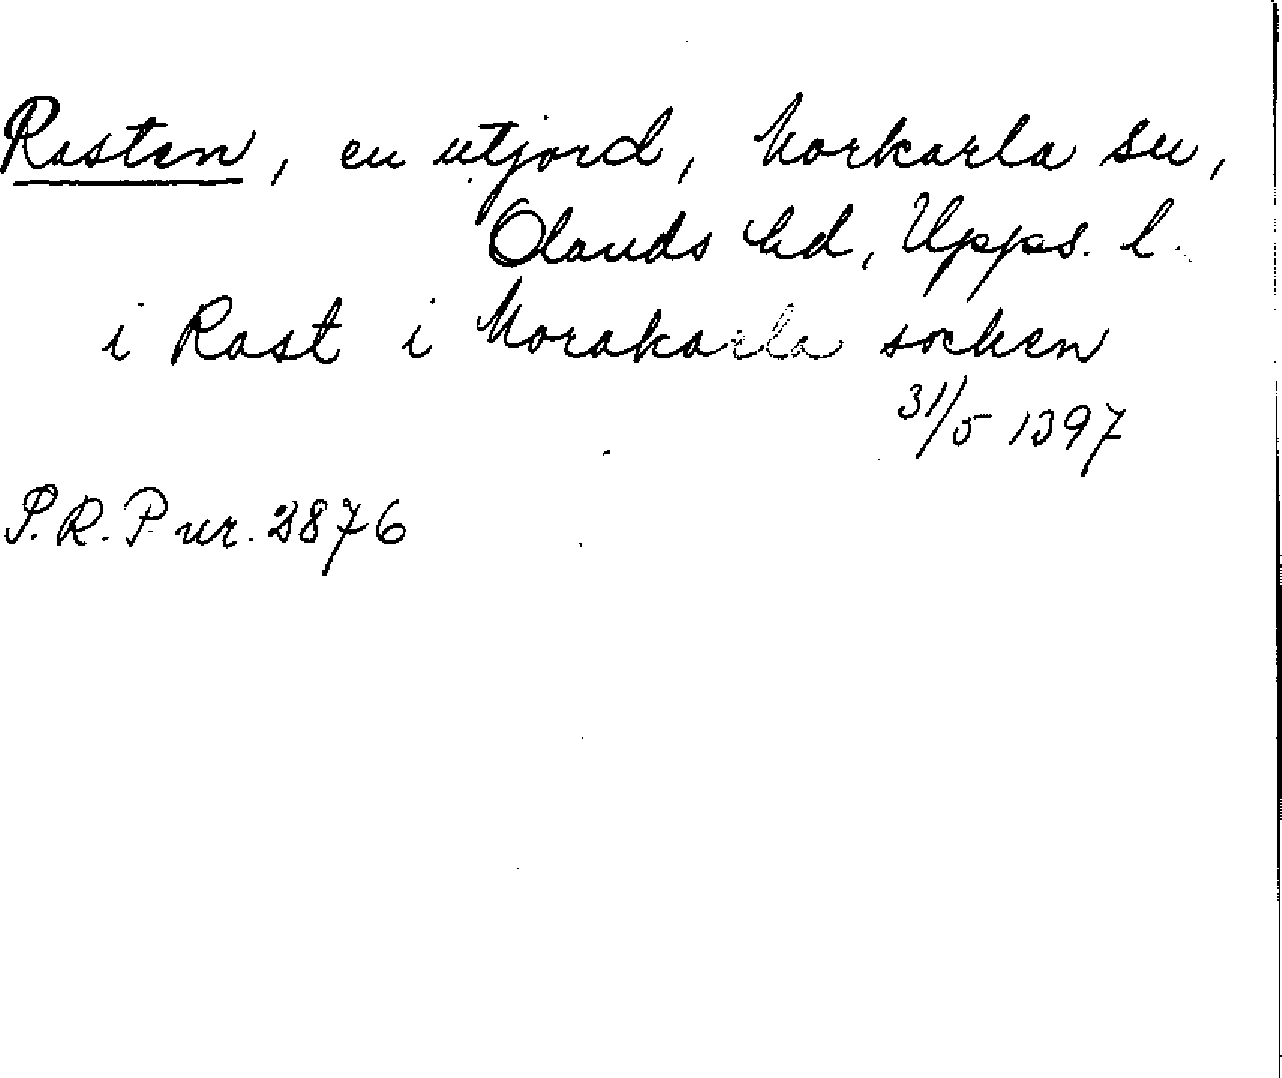 Rasten, en utjord, Morkarla sn,
Olands hd, Upps. l.
i Rast i Morakarla socken
31/5 1397
S.R.P nr. 2876